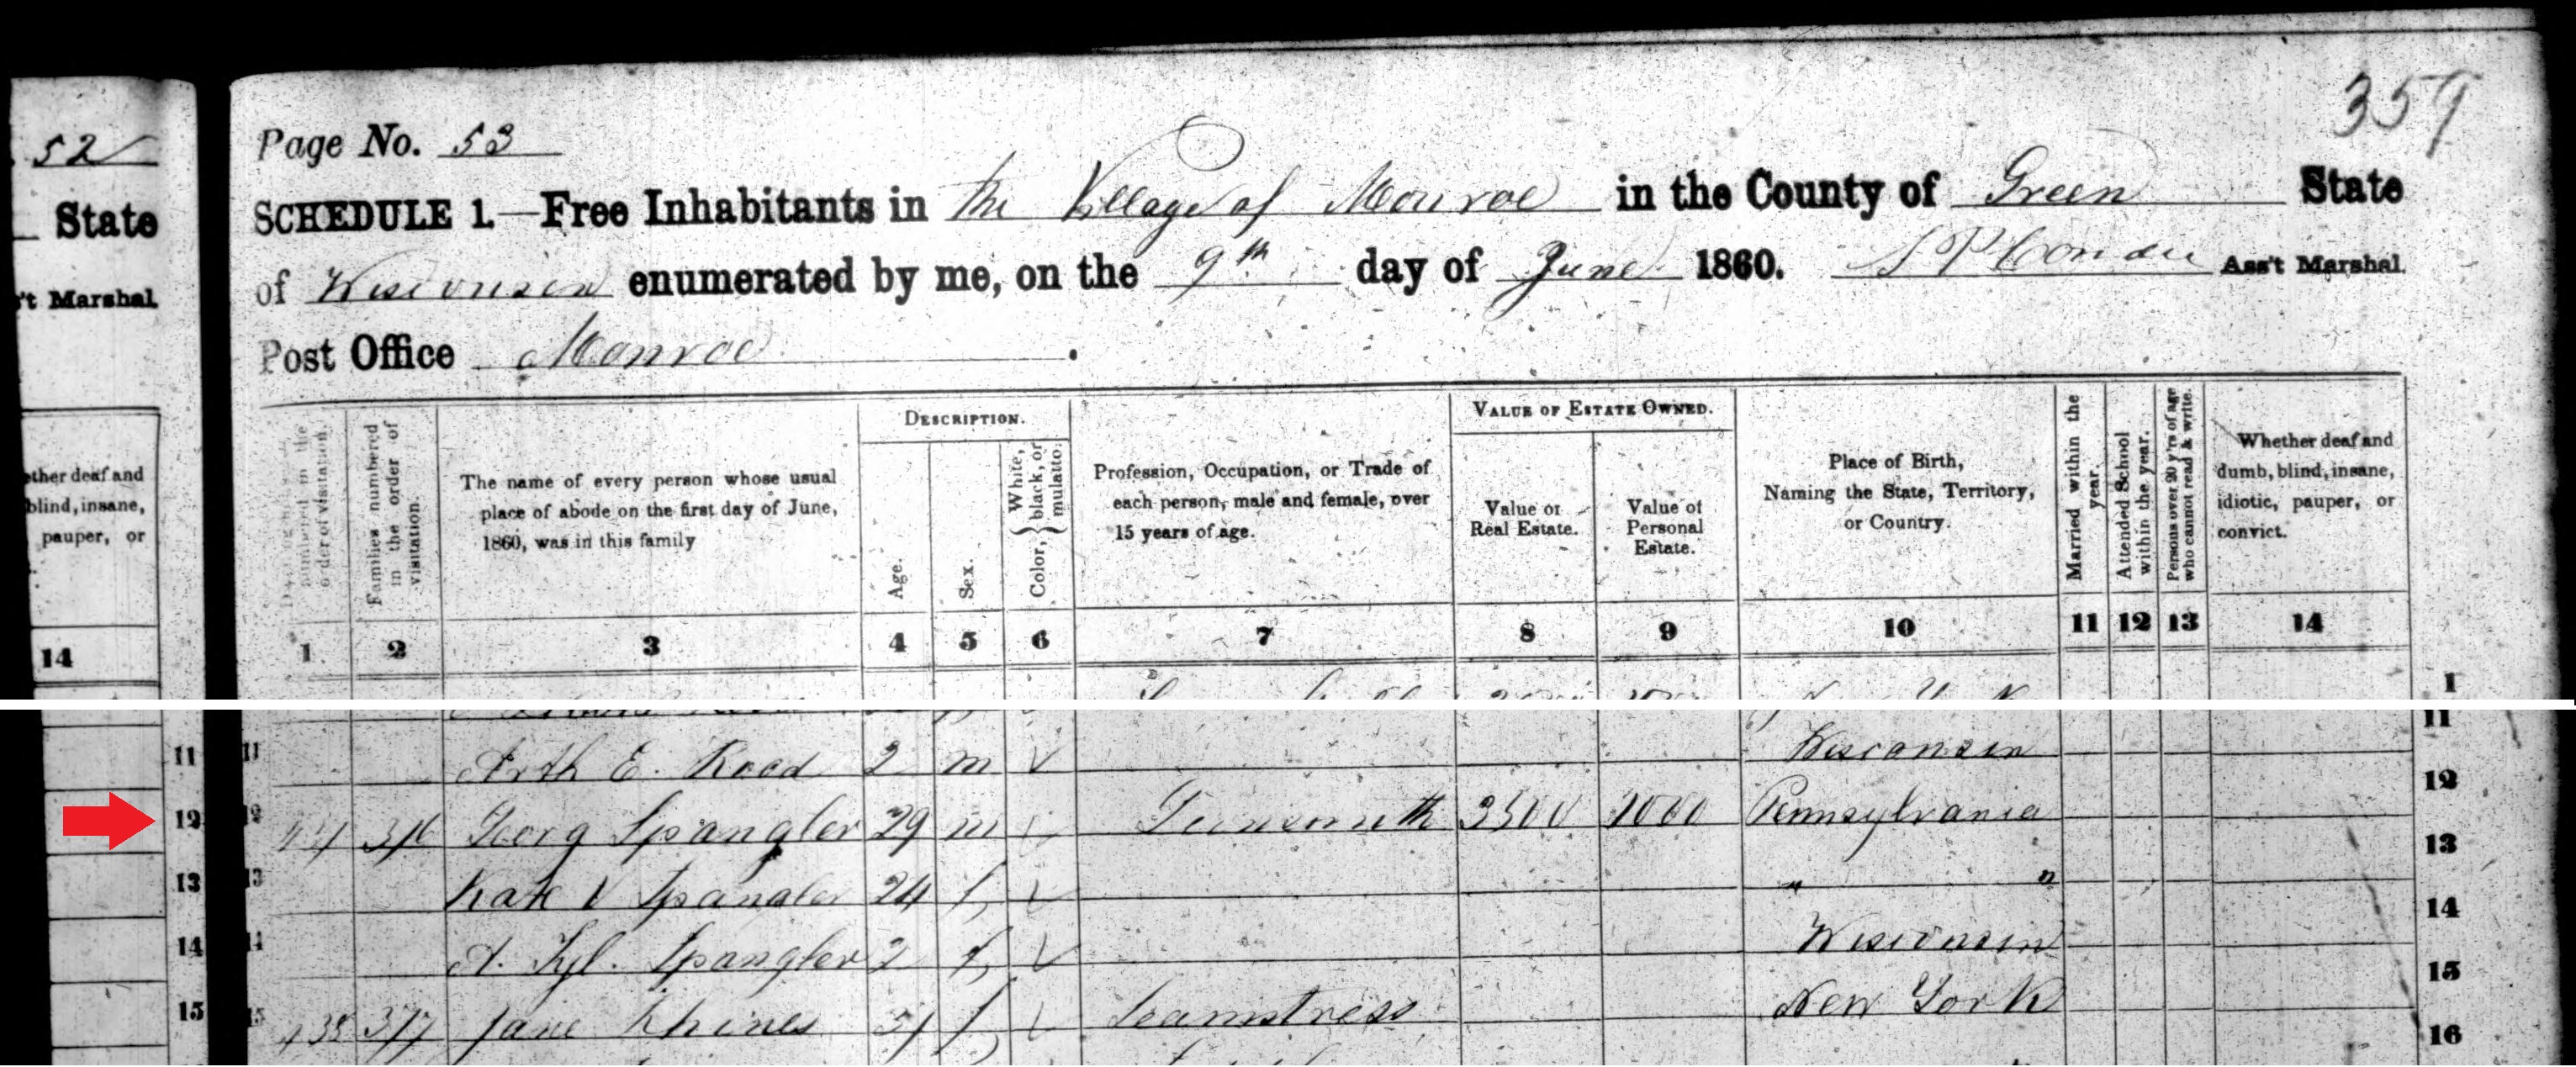 359
52
Page No. 53
State
SCHEDULE 1.—Free Inhabitants in the Village of Monroe in the County of Green State
't Marshal.
of Wisconsin enumerated by me, on the 9th day of June 1860. Ass't Marshal.
Post Office Monroe.
ether deaf and
blind, insane,
pauper, or
14
numbered in the order of visitation.
Families numbered in the order of visitation.
The name of every person whose usual
place of abode on the first day of June,
1860, was in this family
DESCRIPTION.
Age.
Sex.
Color, { White, black, or mulatto. }
Profession, Occupation, or Trade of
each person, male and female, over
15 years of age.
VALUE OF ESTATE OWNED.
Value of
Real Estate.
Value of
Personal
Estate.
Place of Birth,
Naming the State, Territory,
or Country.
Married within the year.
Attended School within the year.
Persons over 20 y'rs of age who cannot read & write.
Whether deaf and
dumb, blind, insane,
idiotic, pauper, or
convict.
1 2 3 4 5 6 7 8 9 10 11 12 13 14
1
11
11 11 E. Rood 2 m Wisconsin 12
12 12 376 Georg Spangler 29 m 1000 Pennsylvania 13
13 13 Kate V Spangler 24 f " " 14
14 14 Spangler 2 f Wisconsin 15
15 15 377 Jane Rhines f Seamstress New York 16